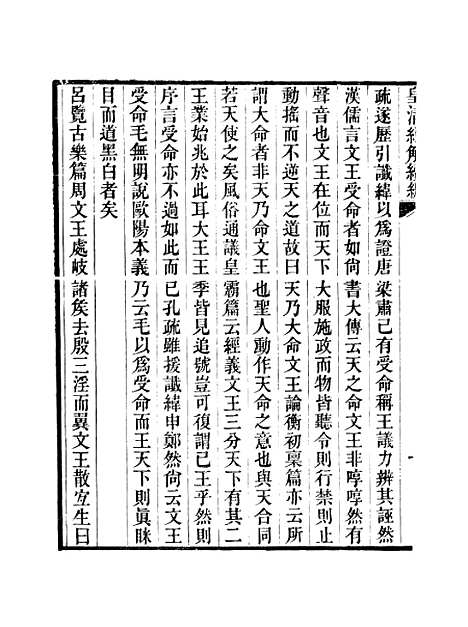 皇清經解續編
疏遂歷引讖緯以爲證唐梁肅已有受命稱王議力辨其誣然
漢儒言文王受命者如尙書大傳云天之命文王非啍啍然有
聲音也文王在位而天下大服施政而物皆聽令則行禁則止
動搖而不逆天之道故曰天乃大命文王論衡初稟篇亦云所
謂大命者非天乃命文王也聖人動作天命之意也與天合同
若天使之矣風俗通議皇霸篇云經義文王三分天下有其二
王業始兆於此耳大王王季皆見追號豈可復謂已王乎然則
序言受命亦不過如此而已孔疏雖援讖緯申鄭然尙云文王
受命毛無明說歐陽本義乃云毛以爲受命而王天下則眞眯
目而道黑白者矣
呂覽古樂篇周文王處岐諸矦去殷三淫而翼文王散宜生曰